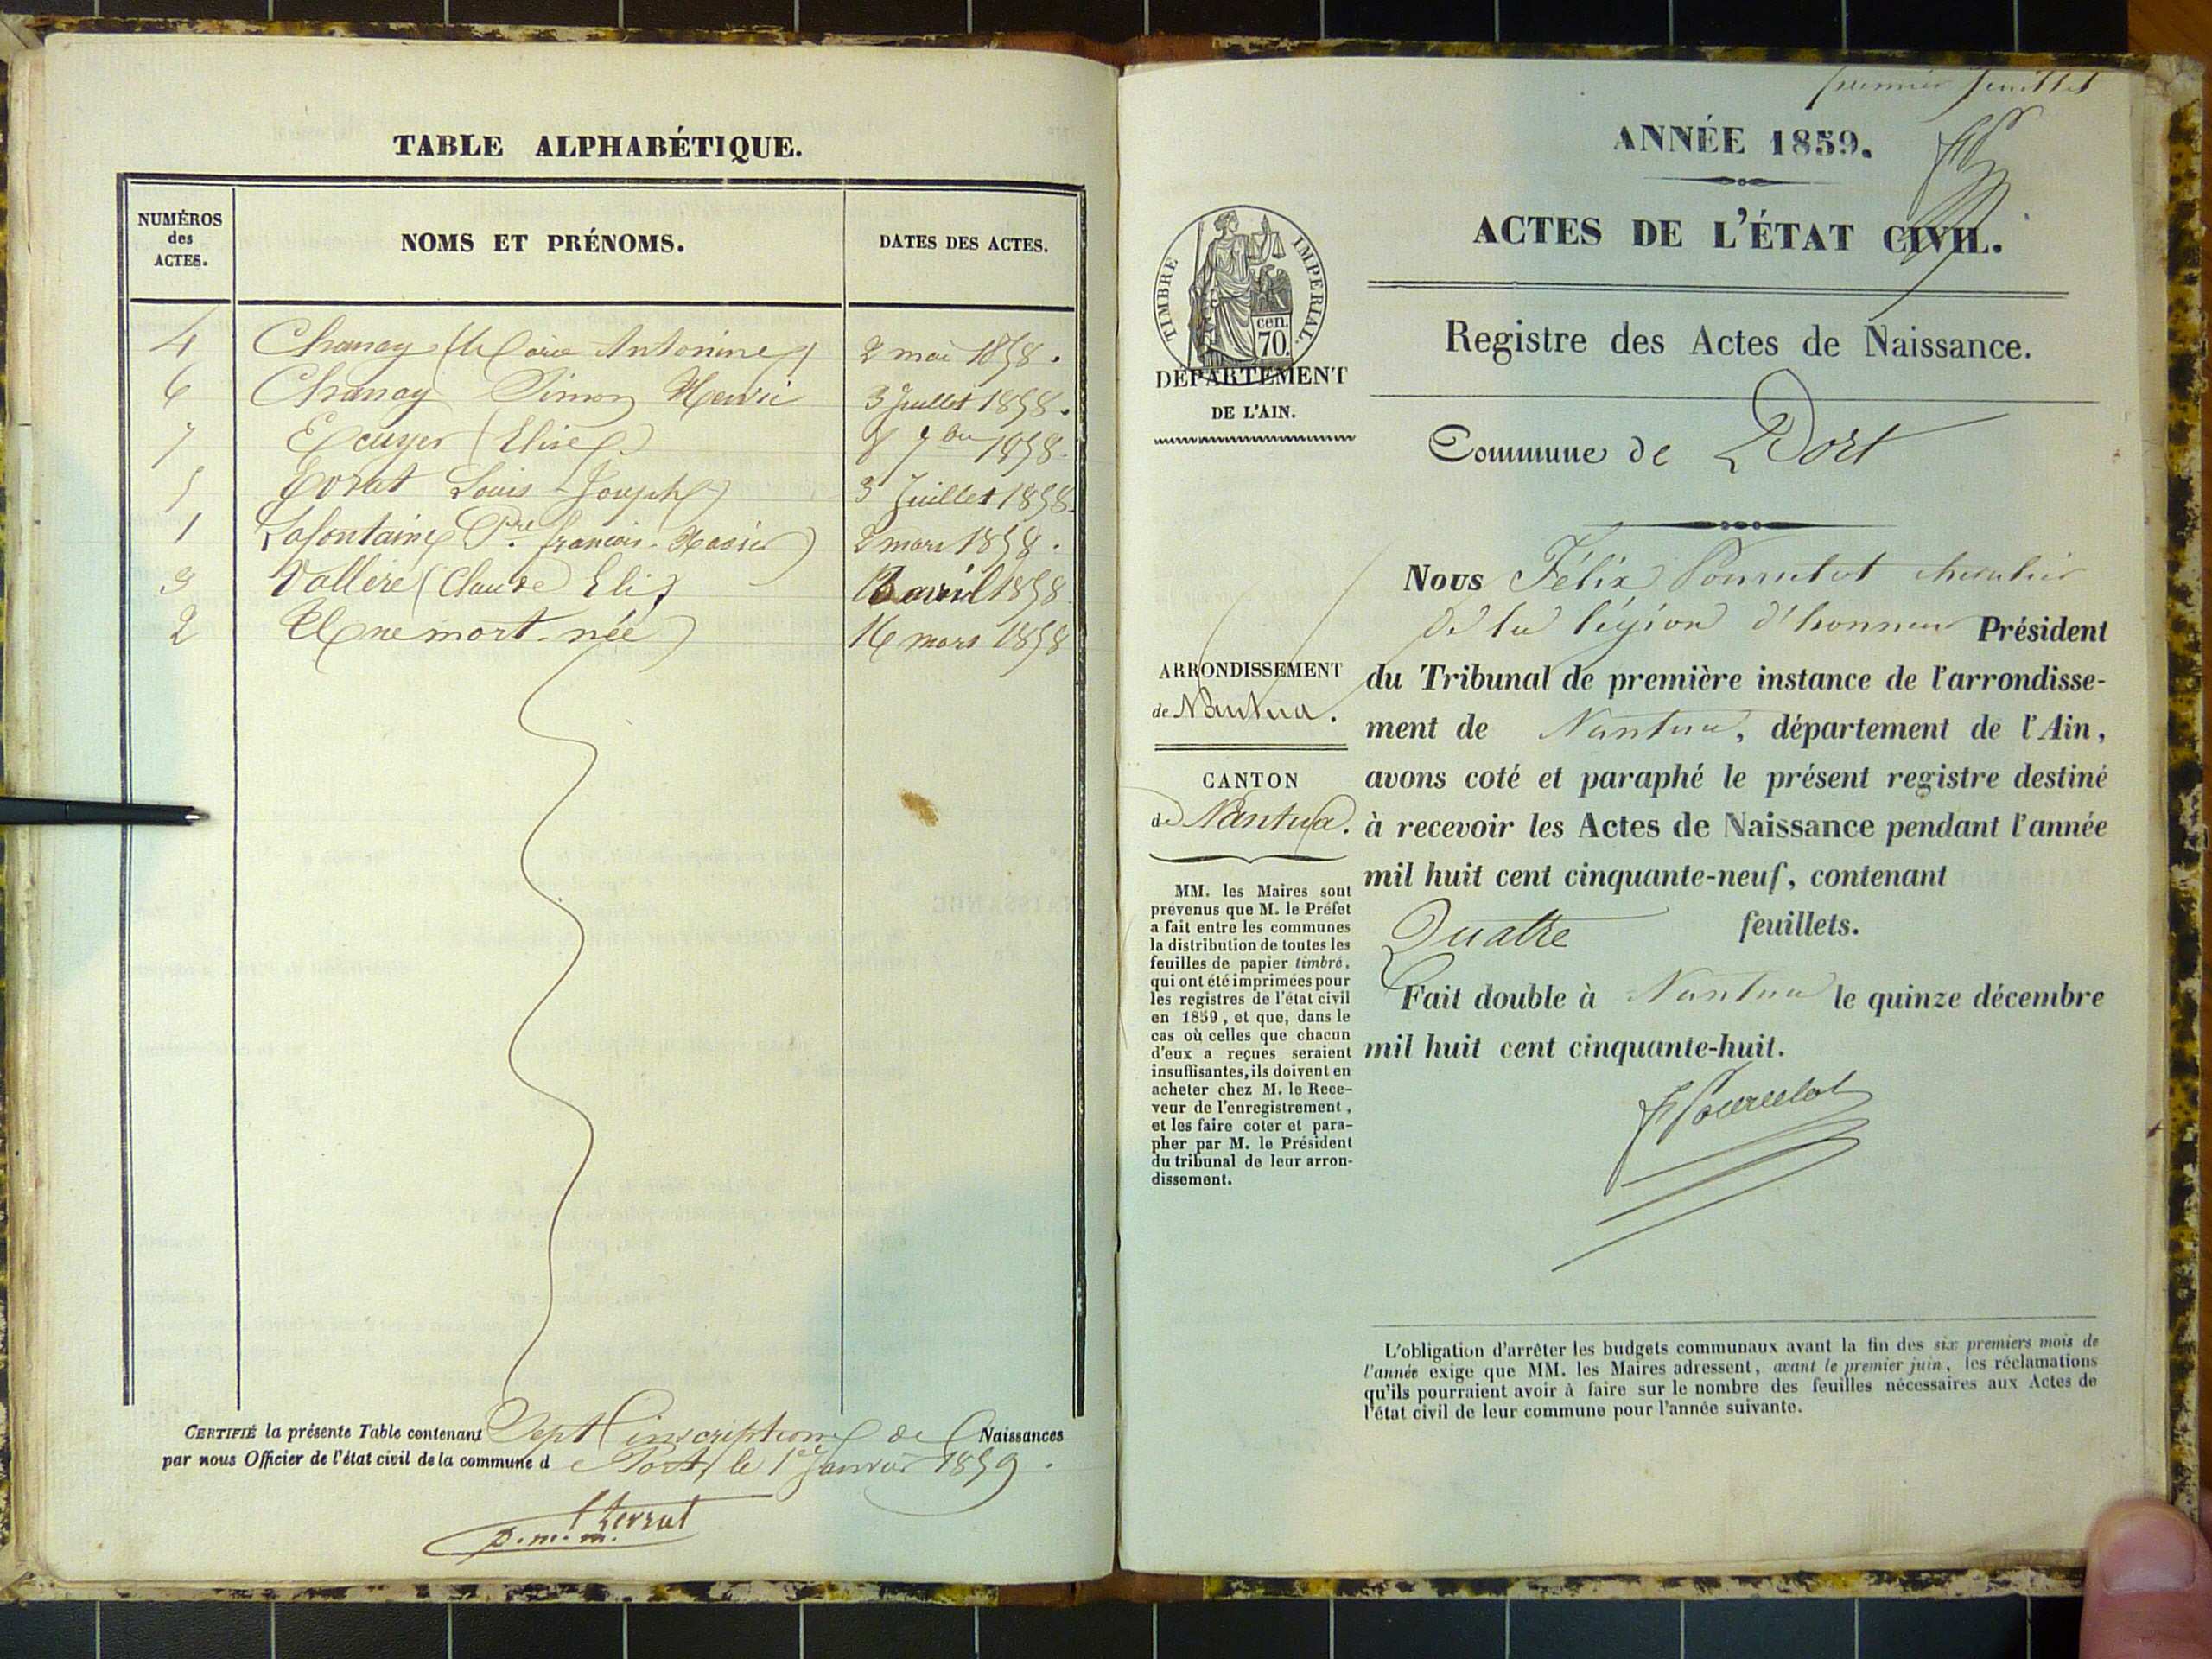 TABLE ALPHABÉTIQUE.
NUMÉROS
des
ACTES.
NOMS ET PRÉNOMS.
DATES DES ACTES.
4 Chanay (Marie Antonine) 2 mai 1858.
6 Chanay Simon Henri 3 Juillet 1858.
7 Ecuyer (Elise) 8 7bre 1858.
5 Louis Joseph 3 Juillet 1858.
1 Lafontaine Pre françois-Xavier 2 mars 1858.
3 Vallere (Claude Eli) avril 1858
2 Une mort-née 16 mars 1858
CERTIFIÉ la présente Table contenant Sept inscriptions de Naissances
par nous Officier de l'état civil de la commune d e Port, le 1er Janvier 1859.
p. m. m.
premier feuillet
ANNÉE 1859.
ACTES DE L'ÉTAT CIVIL.
Registre des Actes de Naissance.
Commune de Port
TIMBRE IMPERIAL.
cen.
70.
DÉPARTEMENT
DE L'AIN.
ARRONDISSEMENT
de Nantua.
CANTON
de Nantua.
MM. les Maires sont
prévenus que M. le Préfet
a fait entre les communes
la distribution de toutes les
feuilles de papier timbré,
qui ont été imprimées pour
les registres de l'état civil
en 1859, et que, dans le
cas où celles que chacun
d'eux a reçues seraient
insuffisantes, ils doivent en
acheter chez M. le Rece-
veur de l'enregistrement,
et les faire coter et para-
pher par M. le Président
du tribunal de leur arron-
dissement.
Nous Félix Pourcelot chevalier
de la légion d'honneur Président
du Tribunal de première instance de l'arrondisse-
ment de Nantua, département de l'Ain,
avons coté et paraphé le présent registre destiné
à recevoir les Actes de Naissance pendant l'année
mil huit cent cinquante-neuf, contenant
Quatre feuillets.
Fait double à Nantua le quinze décembre
mil huit cent cinquante-huit.
F Pourcelot
L'obligation d'arrêter les budgets communaux avant la fin des six premiers mois de
l'année exige que MM. les Maires adressent, avant le premier juin, les réclamations
qu'ils pourraient avoir à faire sur le nombre des feuilles nécessaires aux Actes de
l'état civil de leur commune pour l'année suivante.